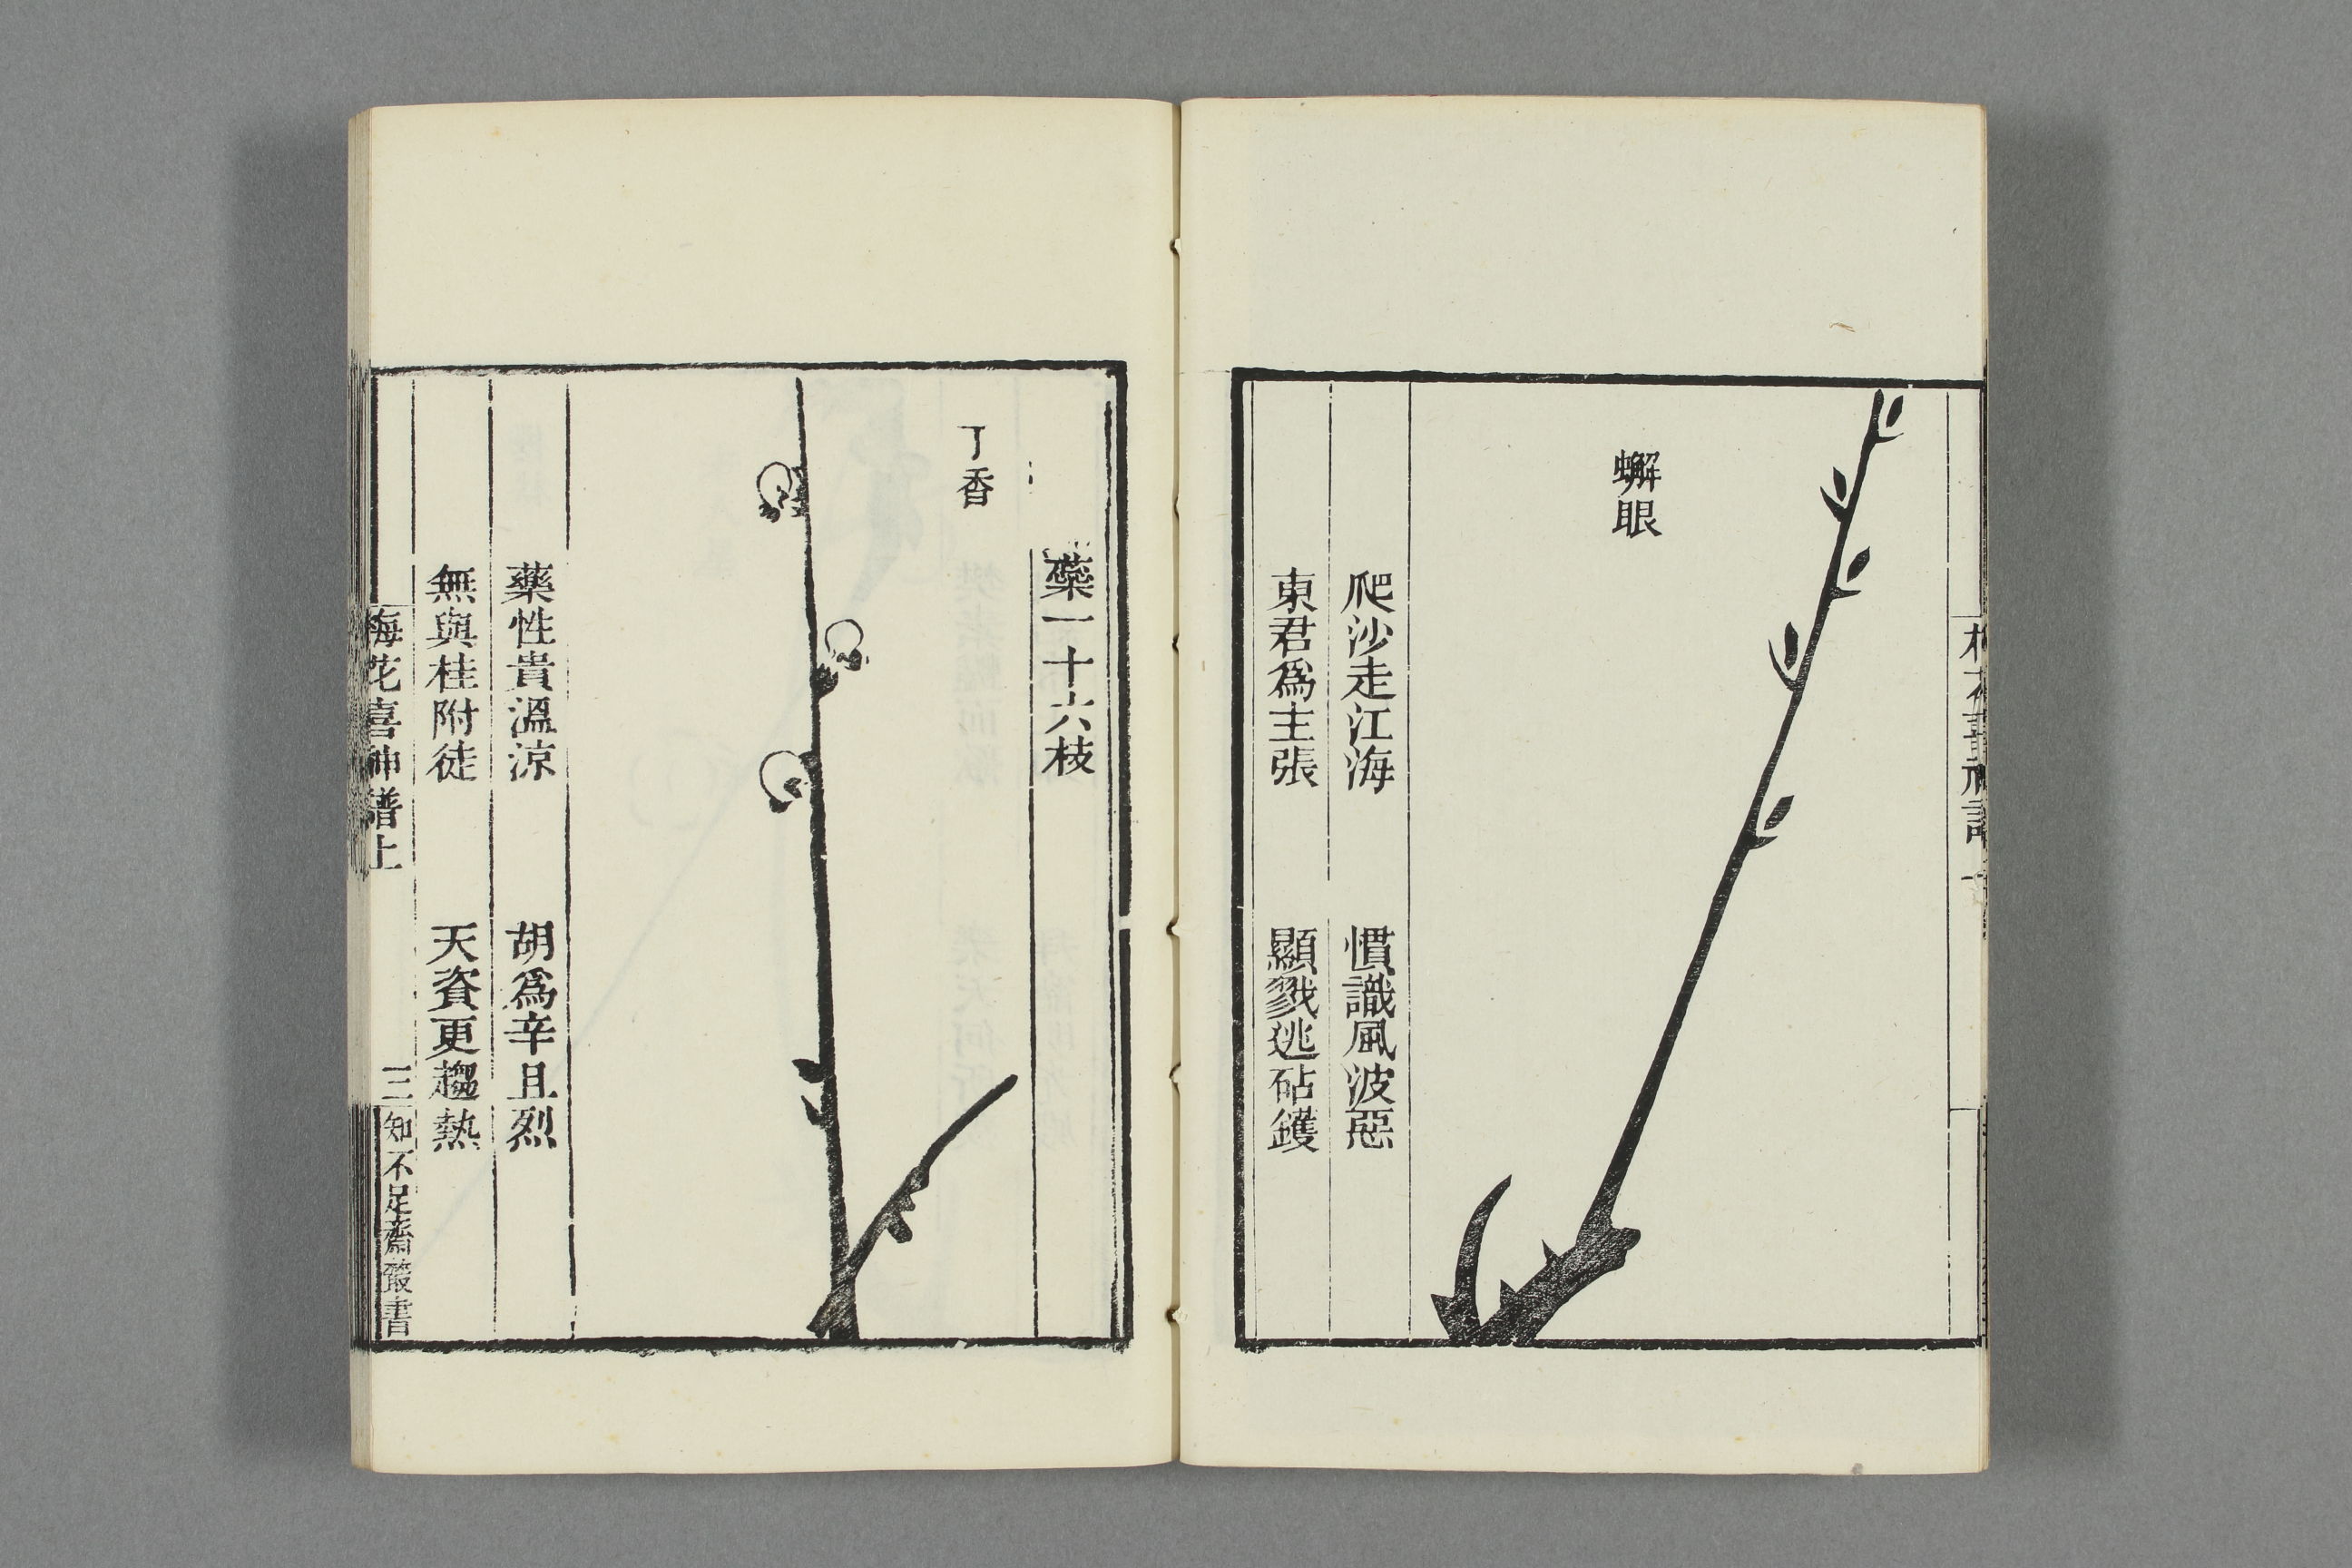 蠏眼
爬沙走江海
慣識風波惡
東君爲主張
顯戮逃砧鑊
蘂一十六枝
丁香
藥性貴溫涼
胡爲辛且烈
無與桂附徒
天資更趨熱
梅花喜神譜上
三
知不足齋叢書